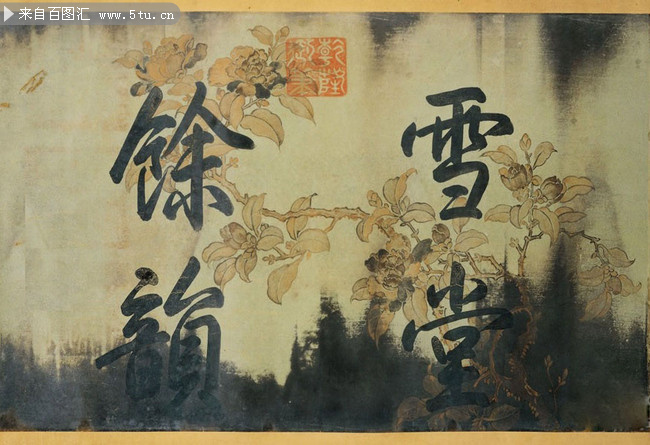 来自百图汇
www.5tu.cn
雪堂
餘韻
乾隆
御筆